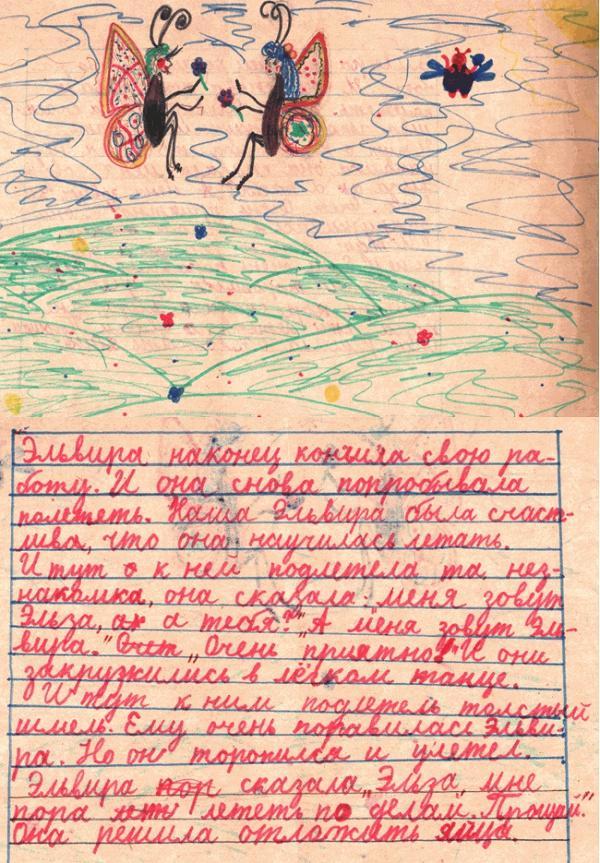 Эльвира наконец кончила свою ра-
боту. И она снова попробывала
полететь. Наша Эльвира была счаст-
лива, что она научилась летать.
И тут к ней подлетела та нез-
накомка, она сказала: меня зовут
Эльза, а тебя?" "А меня зовут Эль-
вира." "Очень приятно!" И они
закружились в лёгком танце.
И тут к ним подлетель толстый
шмель. Ему очень понравилась Эльви-
ра. Но он торопился и улетел.
Эльвира сказала "Эльза, мне
пора лететь по делам. Прощай."
Она решила отлажить яйца.